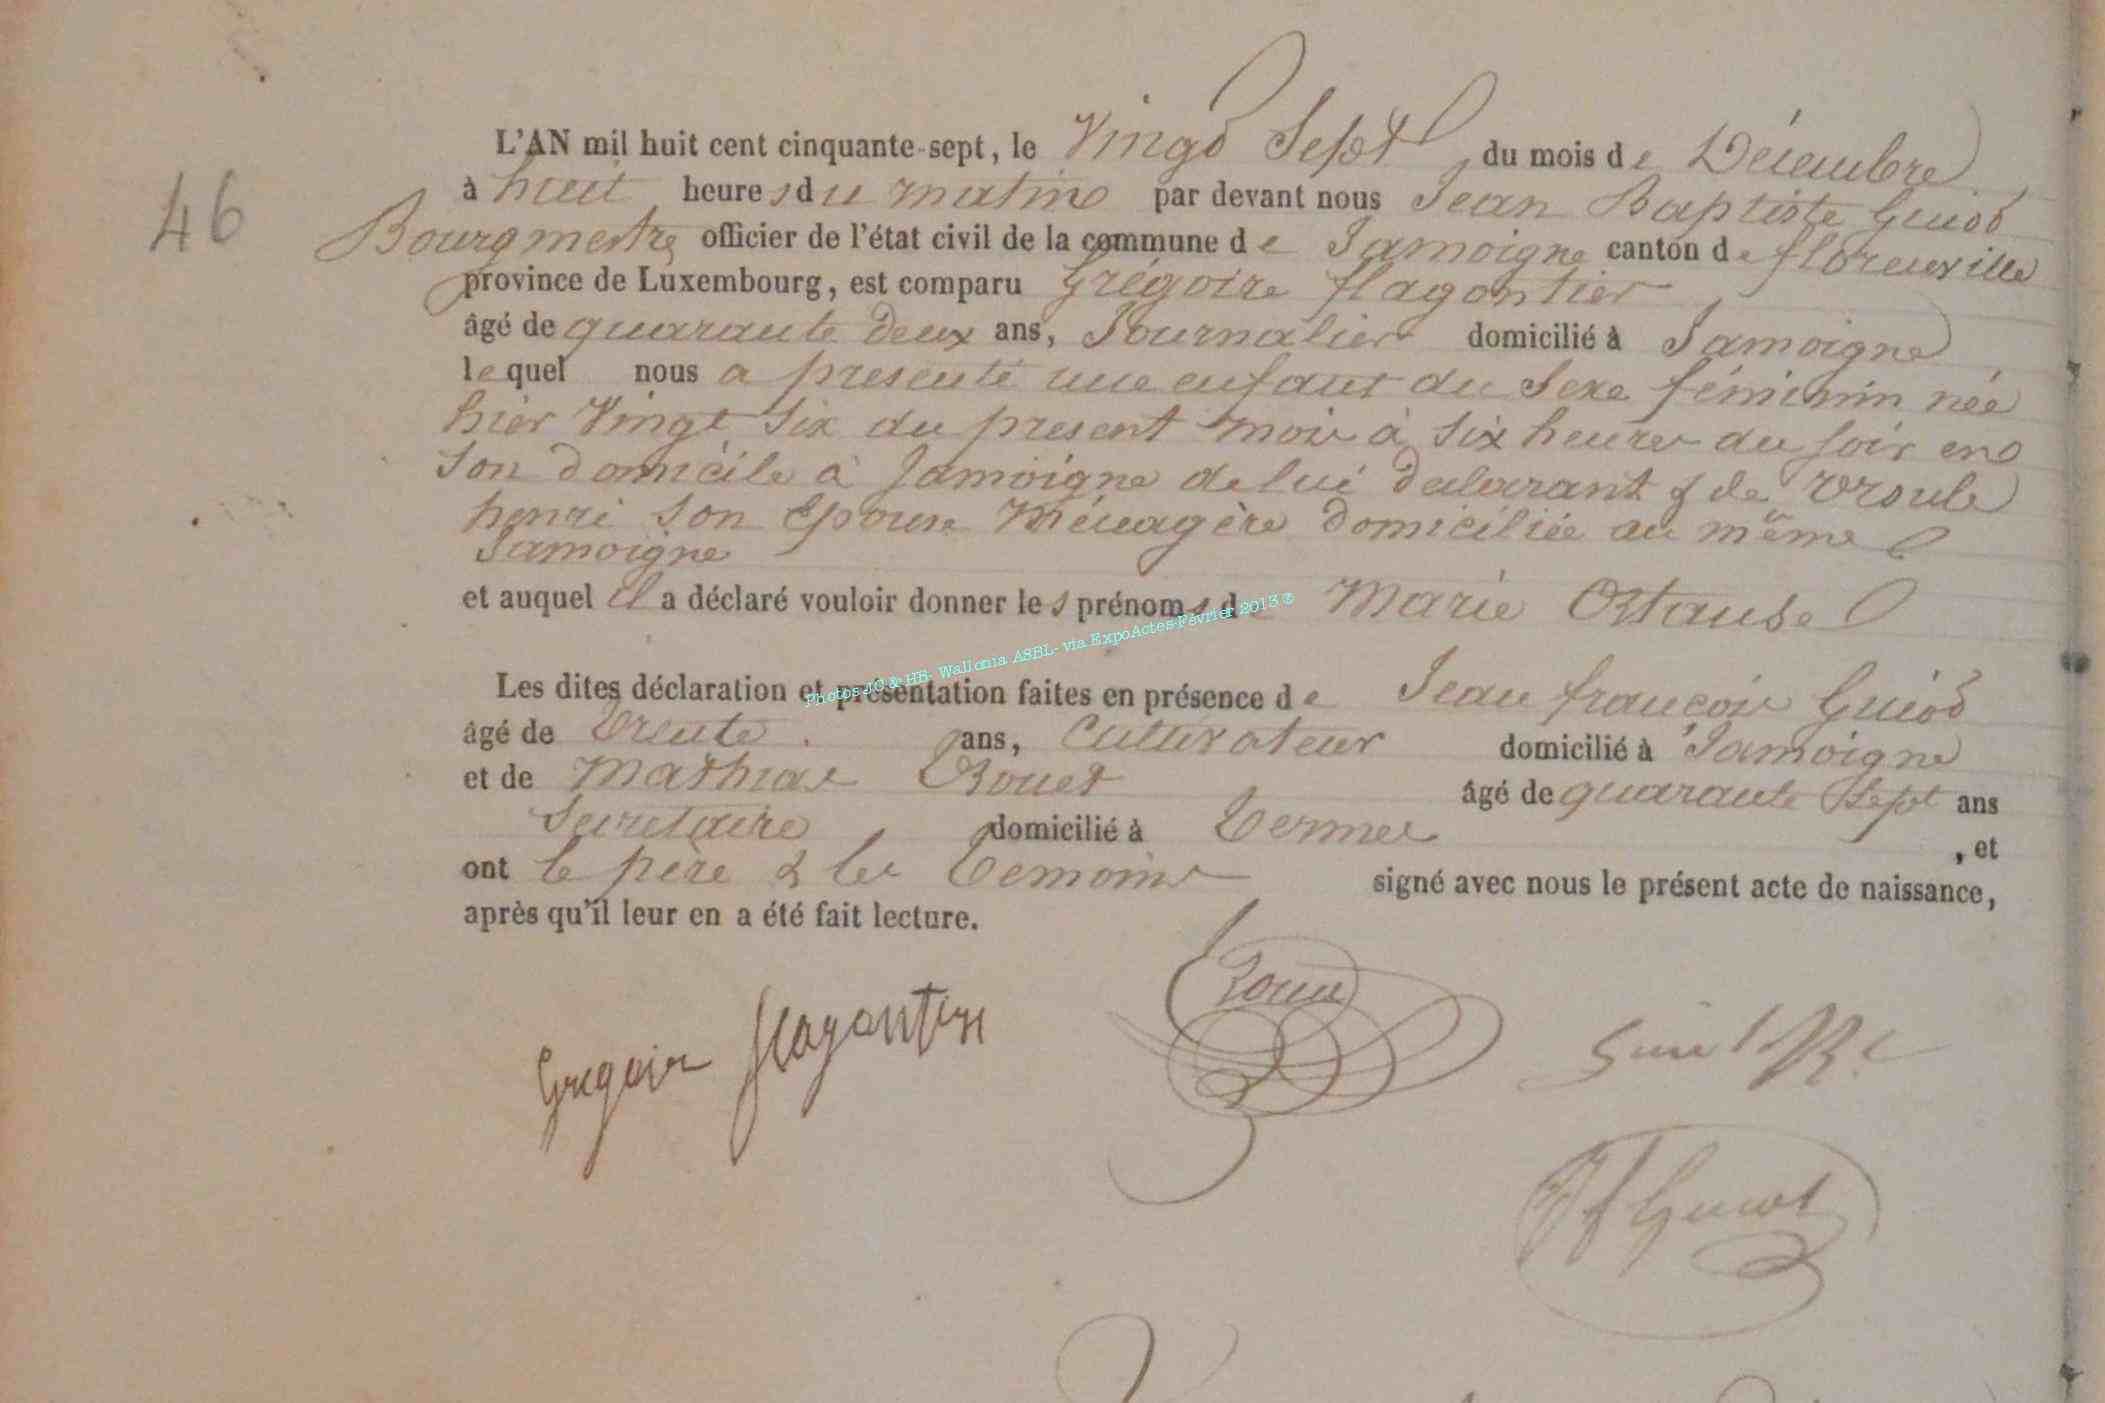 L'AN mil huit cent cinquante-sept, le Vingt Sept du mois de Décembre
46
à huit heures du matin par devant nous Jean Baptiste Guiot
Bourgmestre officier de l'état civil de la commune de Jamoigne canton de florenville
province de Luxembourg, est comparu Grégoire flagontier
âgé de quarante deux ans, Journalier domicilié à Jamoigne
lequel nous a presenté une enfant du Sexe féminin née
hier Vingt Six du present mois à six heures du soir en
son domicile à Jamoigne de lui déclarant & de Ursule
henri son Epouse Ménagère domiciliée au même
Jamoigne
et auquel il a déclaré vouloir donner les prénoms de Marie Ortause
Photos JC & HB- Wallonia ASBL- via ExpoActes-Février 2013 ©
Les dites déclaration et présentation faites en présence de Jean françois Guiot
âgé de trente ans, Cultivateur domicilié à Jamoigne
et de Mathias Rouet âgé de quarante Sept ans
Secretaire domicilié à Termes , et
ont le père & les temoins signé avec nous le présent acte de naissance,
après qu'il leur en a été fait lecture.
Gregoir flagontier
Guiot